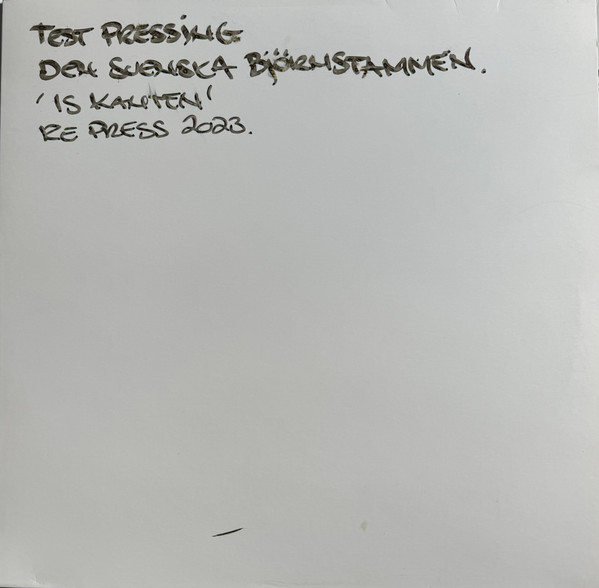 TEST PRESSING
DEN SVENSKA BJÖRNSTAMMEN.
'IS KANTEN'
RE PRESS 2023.